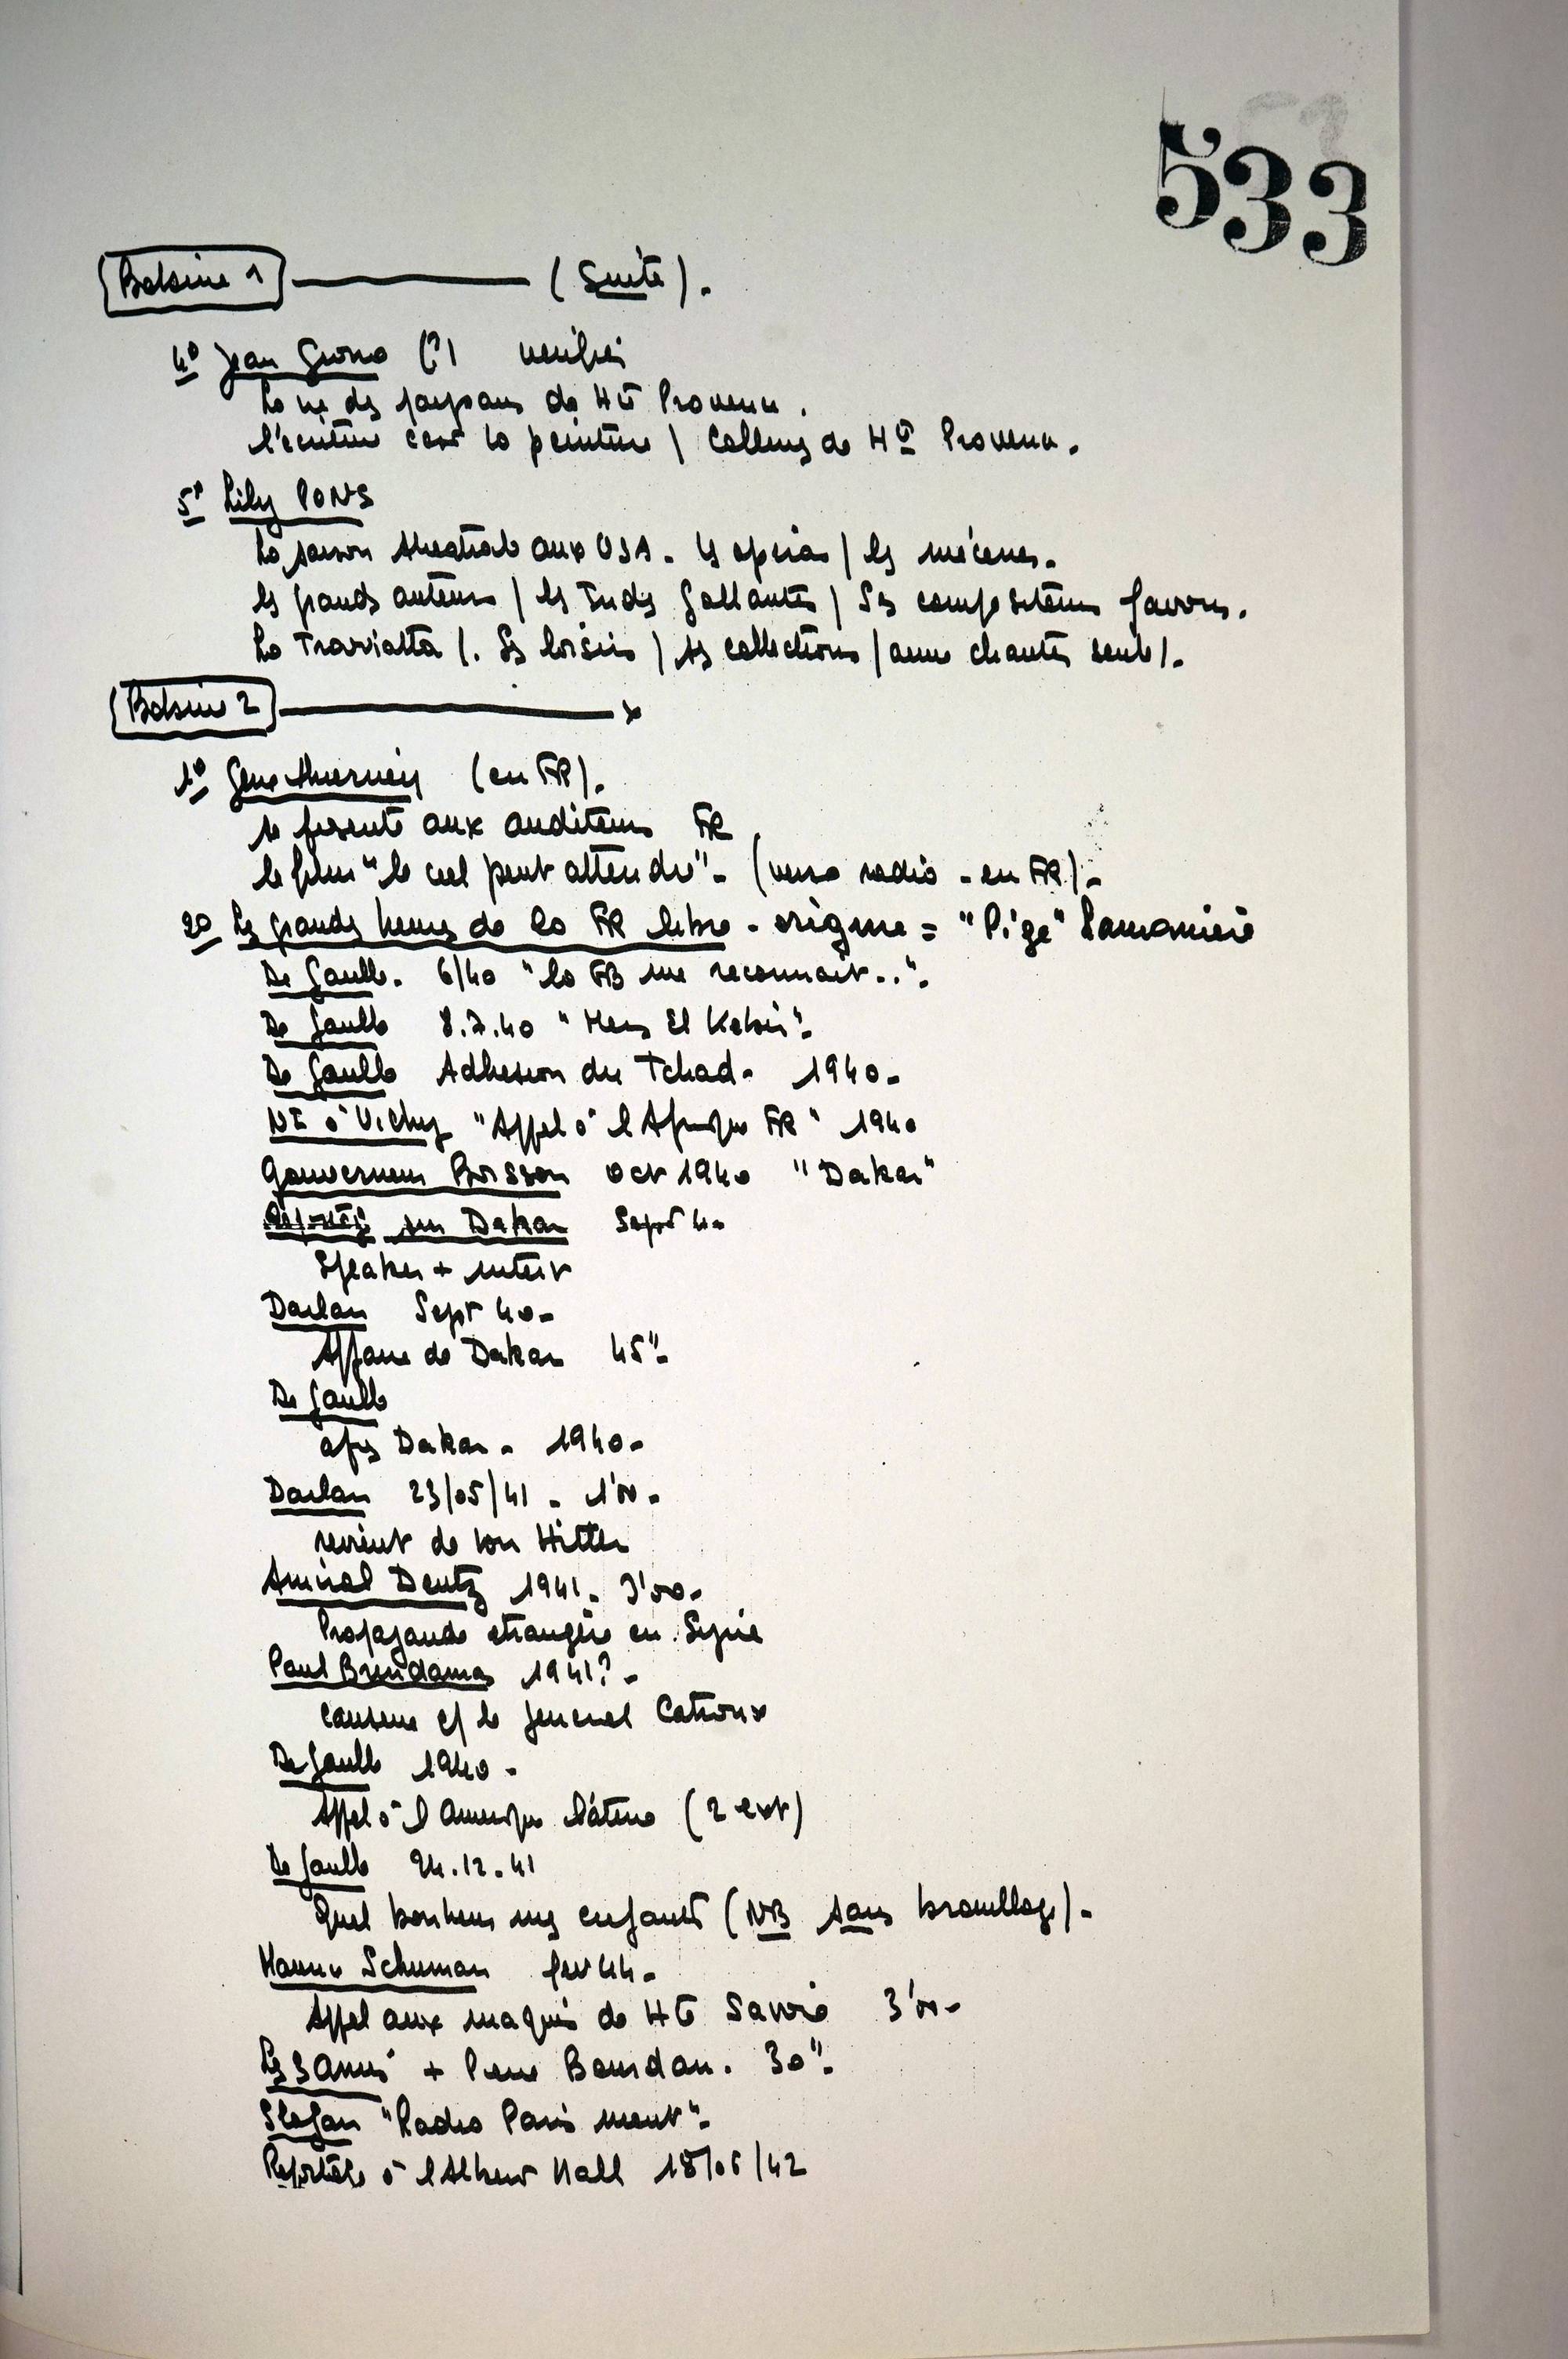 533
Bobine 1 ——— (Suite).
4° Jean Giono (?) verifié
La vie des paysans de Hte Provence.
l'écriture c'est la peinture / Collines de Hte Provence.
5° Lily PONS
La saison théatrale aux USA. Les opéras / les mécènes.
les grands auteurs / les Indes Gallantes / Ses compositeurs favoris.
La Traviatta /. Ses loisirs / ses collections / aime chanter seule /.
Bobine 2 ———
1° Gene thierney (en FR).
se presente aux auditeurs FR
le film "le ciel peut attendre". (vers radio - en FR).
2° Les grandes heures de la FR libre - origine = "Pige" Lamoniere
De Gaulle. 6/40 "la GB me reconnait..".
De Gaulle 8.7.40 "Mers El Kebir".
De Gaulle Adhesion du Tchad. 1940.
à Vichy "Appel à l'Afrique FR" 1940
Gouverneur Boisson Oct 1940 "Dakar"
sur Dakar Sept 40
Speaker + interv
Darlan Sept 40.
Affaire de Dakar 45".
De Gaulle
après Dakar. 1940.
Darlan 23/05/41. 1'00.
revient de voir Hitler
Amiral Dentz 1941. 3'00.
Propagande etrangère en Syrie
Paul 1941?.
causerie c/ le general Catroux
De Gaulle 1940.
Appel à l'Amerique latine (2 ext)
De Gaulle 24.12.41
Quel bonheur mes enfants (NB sans brouillage).
Maurice Schuman fev 44.
Appel aux maquis de Hte Savoie 3'00.
Les 3 Amis + Pierre Bourdan. 30".
Slogan "Radio Paris ment".
Reportage à l'Albert Hall 18/06/42